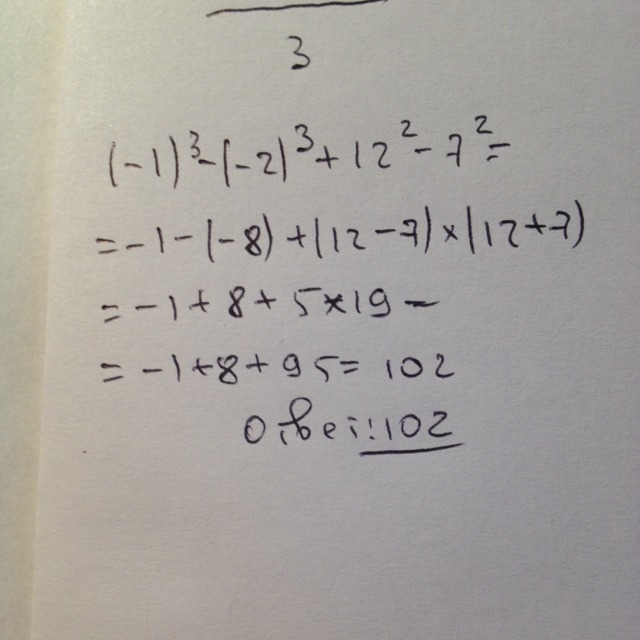 3
(-1)³-(-2)³+12²-7²=
=-1-(-8)+(12-7)×(12+7)
=-1+8+5×19-
=-1+8+95=102
Ответ:102